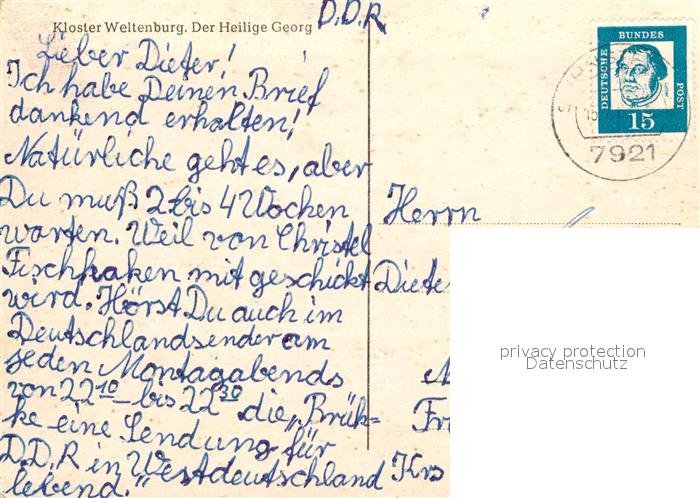 D.D.R
Kloster Weltenburg. Der Heilige Georg
Lieber Dieter!
Ich habe Deinen Brief
dankend erhalten!
Natürliche geht es, aber
Du muß 2 bis 4 Wochen
warten. Weil von Christel
Fischhaken mit geschickt
wird. Hörst Du auch im
Deutschlandsender am
jeden Montagabends
von 22 10 bis 22 30 die „Brük-
ke eine Sendung für
D.D.R in Westdeutschland
lebend."
DEUTSCHE BUNDESPOST
15
7921
Herrn
Diete
privacy protection
Datenschutz
Fr
Krs